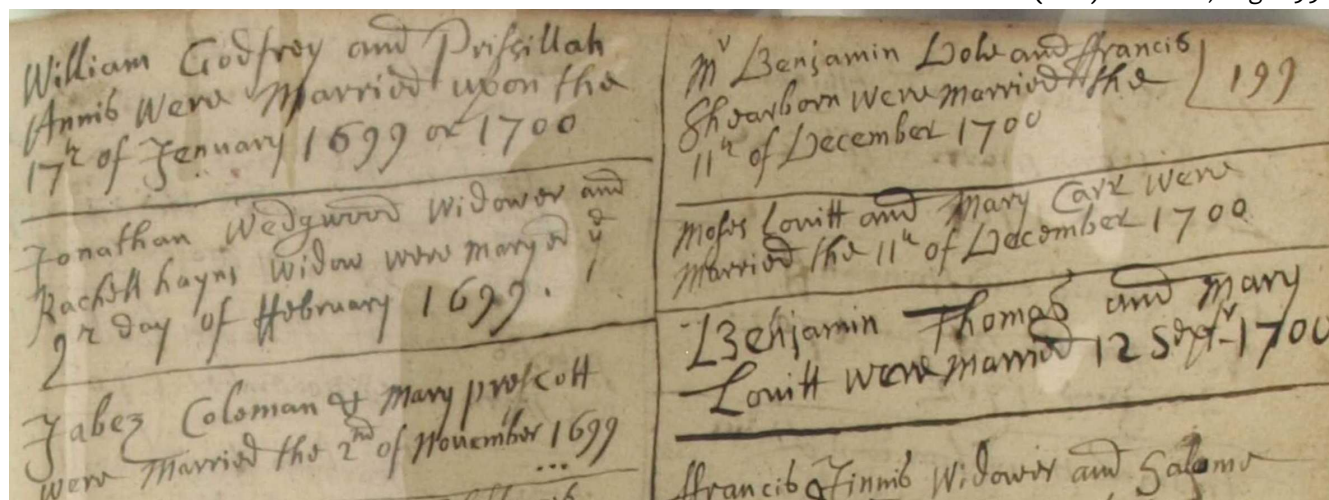 William Godfrey and Prissillah
Annis were Married upon the
17th of Jenuary 1699 or 1700
Jonathan Wedgwood Widower and
Rachell hayns Widow were maryed ye
2th day of ffebruary 1699.
Jabez Coleman & Mary prescott
were Married the 2nd of November 1699
...
Mr Benjamin Dole and ffrancis
Shearborn were married the
11th of December 1700
199
Moses Lovitt and Mary Carr were
Married the 11th of December 1700
Benjamin Thomas and Mary
Lovitt were married 12 Septr 1700
ffrancis Jinnis Widower and Salome